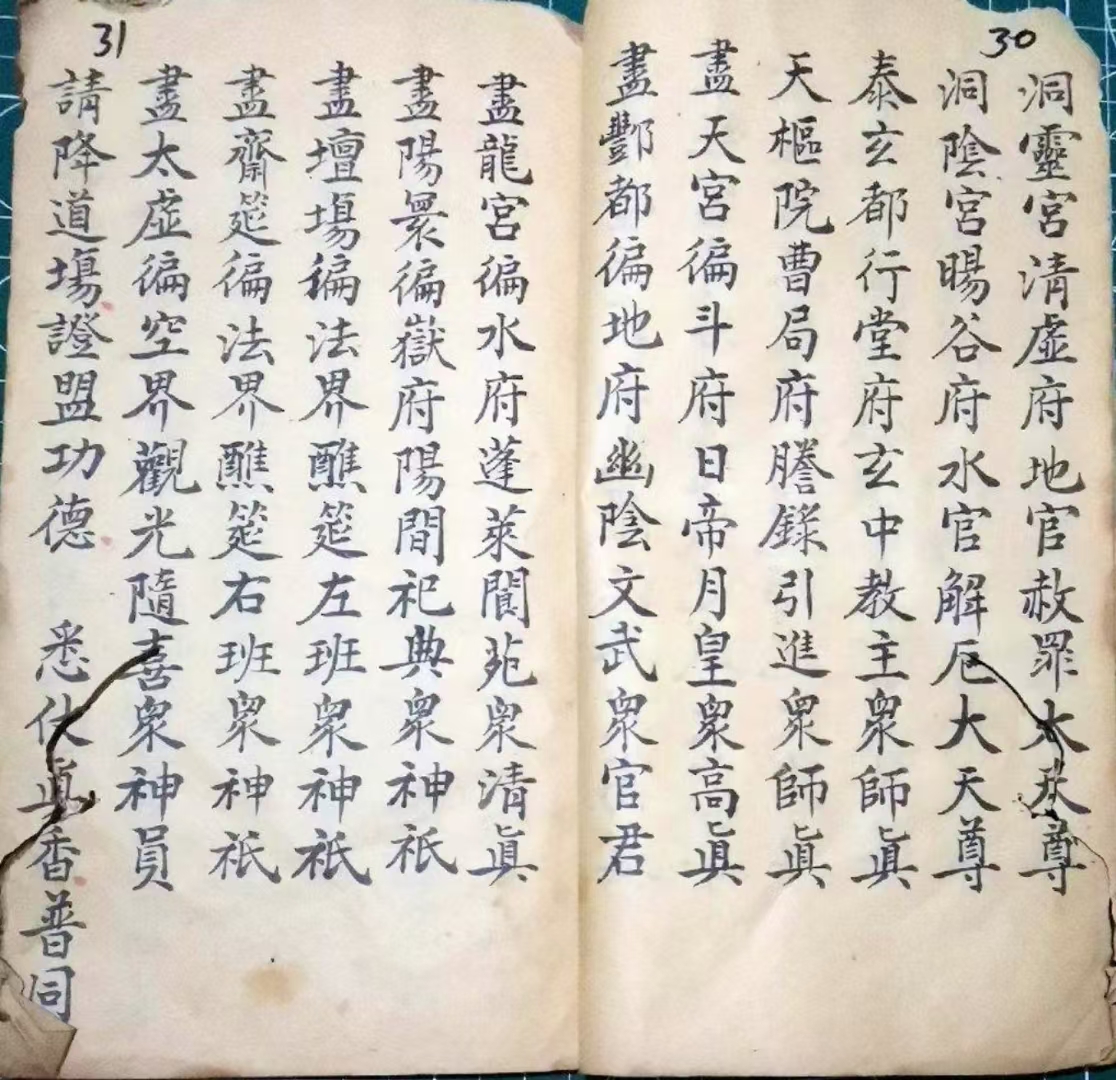 30
洞靈宮清虛府地官赦罪大天尊
洞陰宮暘谷府水官解厄大天尊
泰玄都行堂府玄中教主衆師眞
天樞院曹局府謄錄引進衆師眞
盡天宮徧斗府日帝月皇衆高眞
盡酆都徧地府幽陰文武衆官君
31
盡龍宮徧水府蓬萊閬苑衆清眞
盡陽寰徧嶽府陽間祀典衆神祇
盡壇塲徧法界醮筵左班衆神祇
盡齋筵徧法界醮筵右班衆神祇
盡太虛徧空界觀光隨喜衆神員
請降道塲證盟功德 悉仗眞香普同